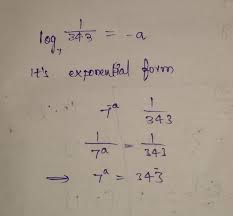 log₇ 1/343 = -a
It's exponential form
∴ 7ᵃ 1/343
1/7ᵃ = 1/343
⇒ 7ᵃ = 343